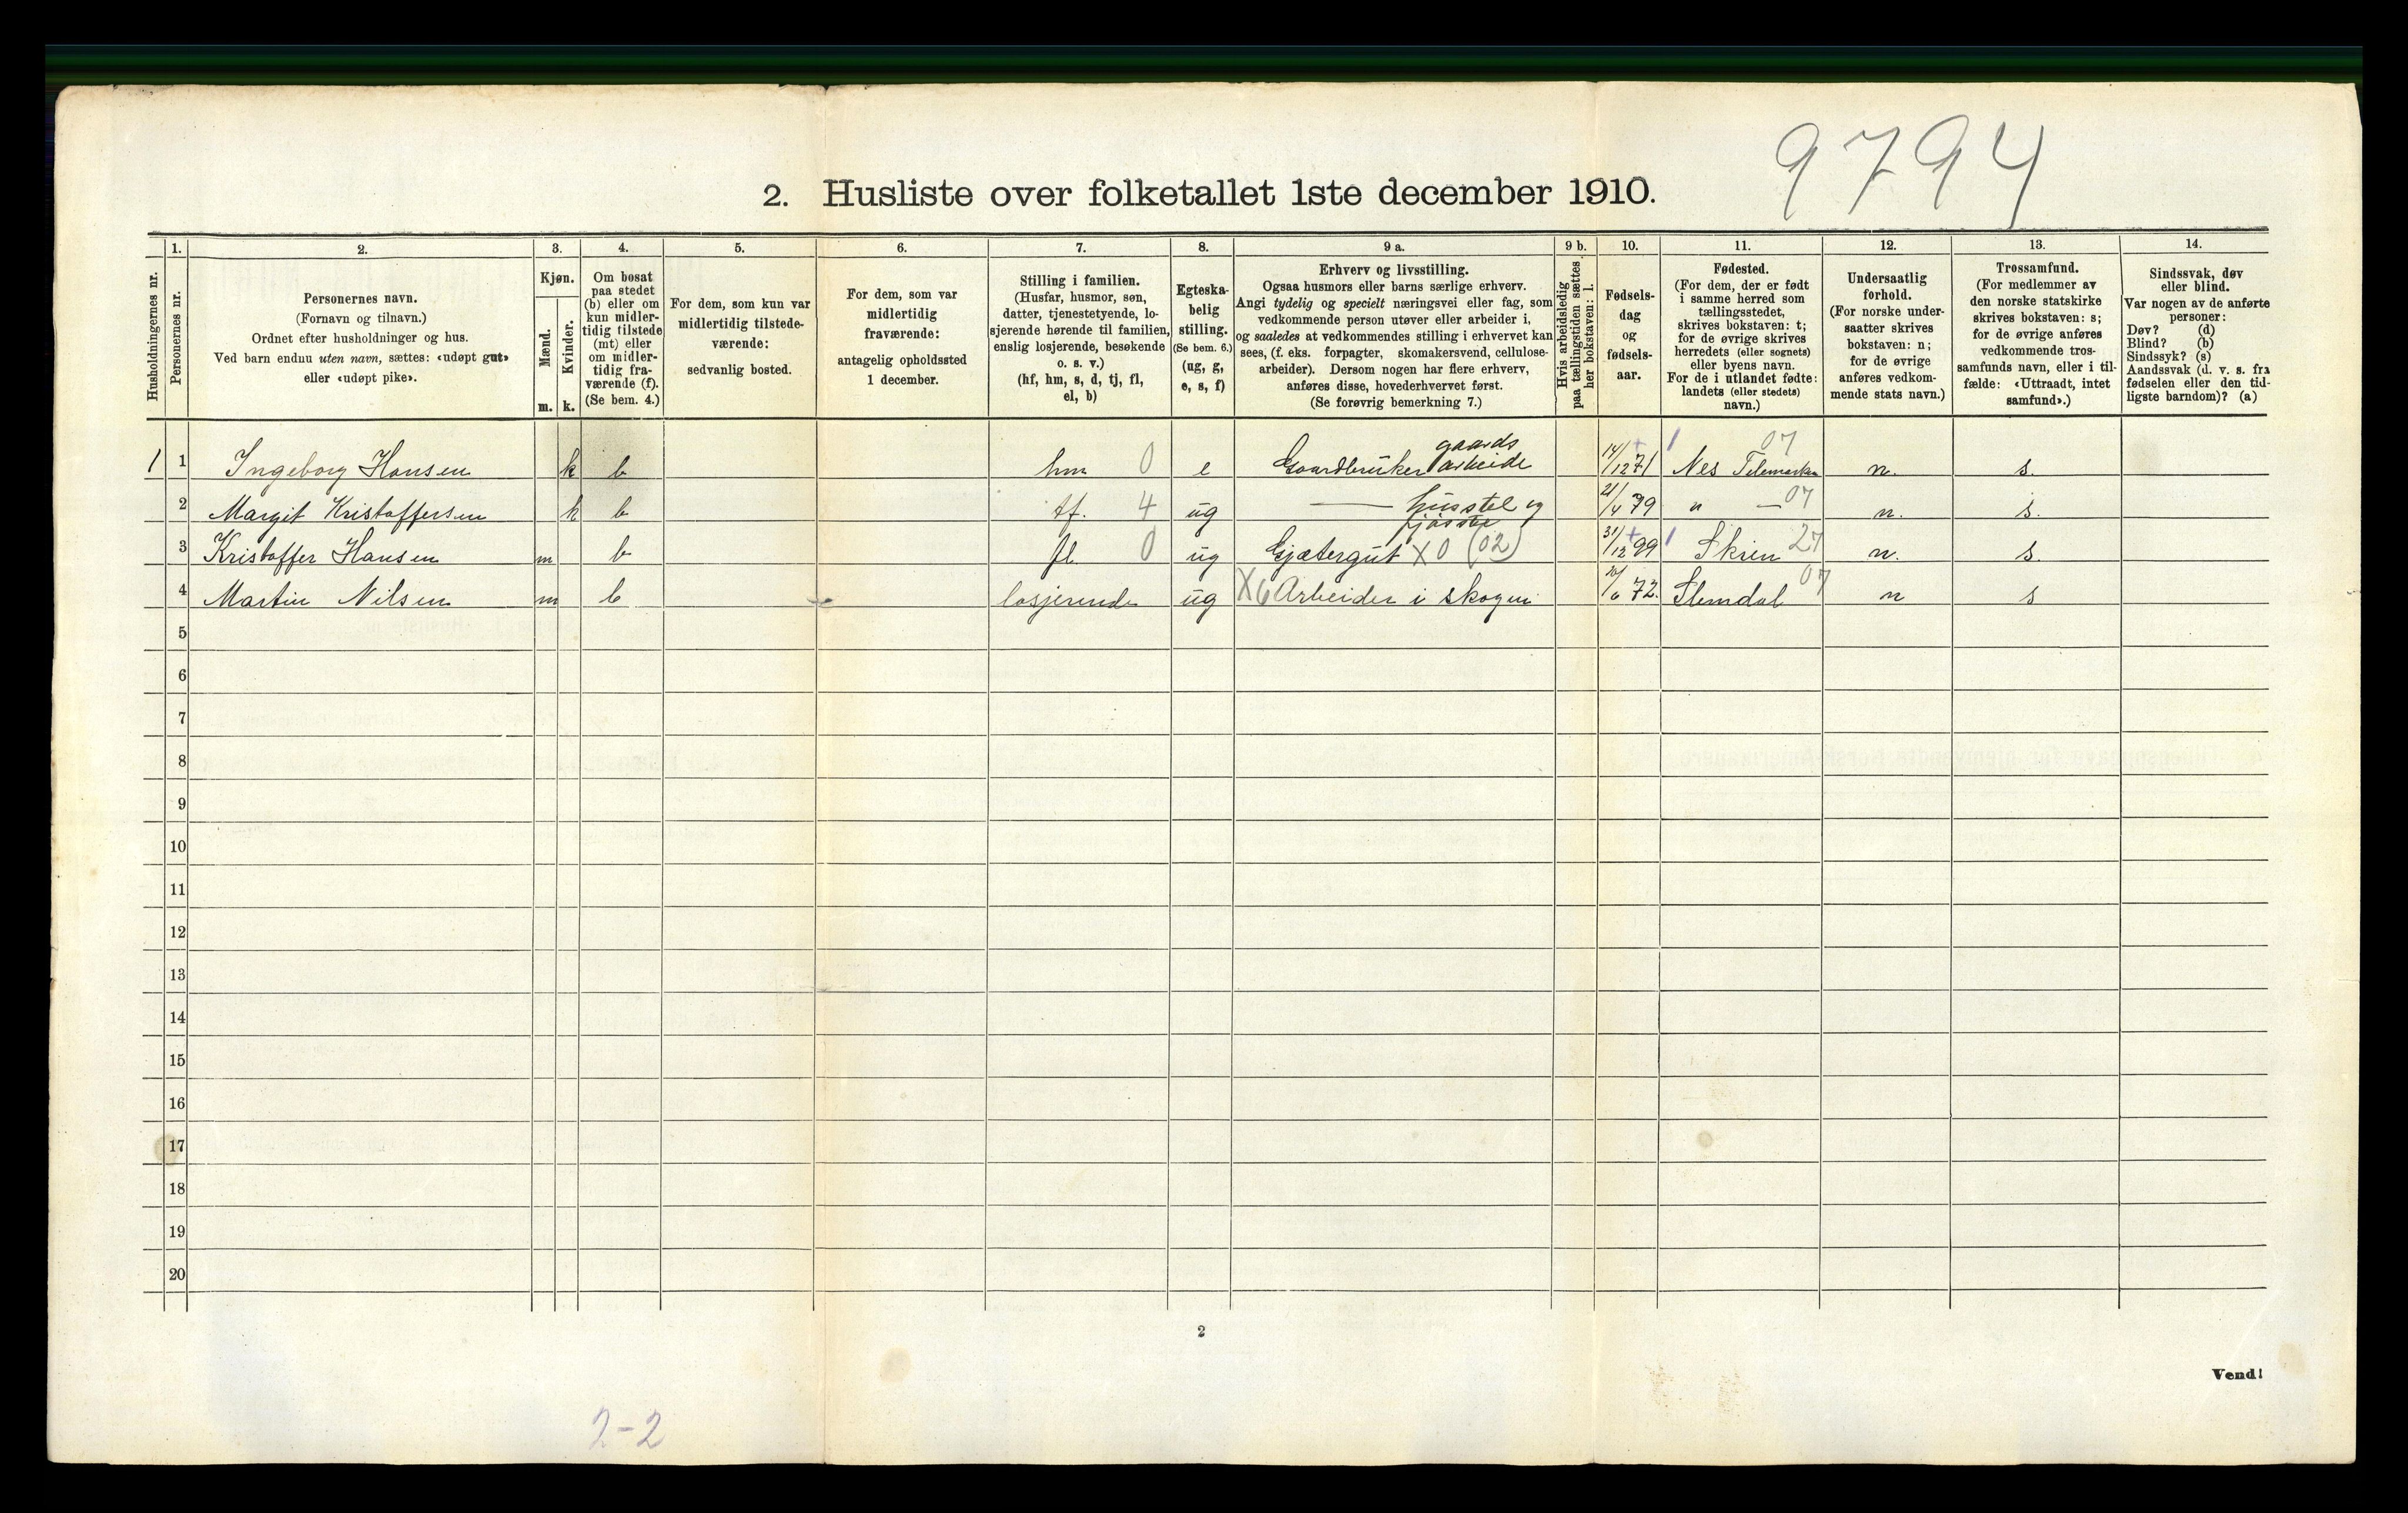 9794
2. Husliste over folketallet 1ste december 1910.
Husholdningernes nr.
1.
Personernes nr.
2.
Personernes navn.
(Fornavn og tilnavn.)
Ordnet efter husholdninger og hus.
Ved barn endnu uten navn, sættes: «udøpt gut»
eller «udøpt pike».
3.
Kjøn.
Mænd.
Kvinder.
m. k.
4.
Om bosat
paa stedet
(b) eller om
kun midler-
tidig tilstede
(mt) eller
om midler-
tidig fra-
værende (f).
(Se bem. 4.)
5.
For dem, som kun var
midlertidig tilstede-
værende:
sedvanlig bosted.
6.
For dem, som var
midlertidig
fraværende:
antagelig opholdssted
1 december.
7.
Stilling i familien.
(Husfar, husmor, søn,
datter, tjenestetyende, lo-
sjerende hørende til familien,
enslig losjerende, besøkende
o. s. v.)
(hf, hm, s, d, tj, fl,
el, b)
8.
Egteska-
belig
stilling.
(Se bem. 6.)
(ug, g,
e, s, f)
9 a.
Erhverv og livsstilling.
Ogsaa husmors eller barns særlige erhverv.
Angi tydelig og specielt næringsvei eller fag, som
vedkommende person utøver eller arbeider i,
og saaledes at vedkommendes stilling i erhvervet kan
sees, (f. eks. forpagter, skomakersvend, cellulose-
arbeider). Dersom nogen har flere erhverv,
anføres disse, hovederhvervet først.
(Se forøvrig bemerkning 7.)
9 b.
Hvis arbeidsledig
paa tællingstiden sættes
her bokstaven: l.
10.
Fødsels-
dag
og
fødsels-
aar.
11.
Fødested.
(For dem, der er født
i samme herred som
tællingsstedet,
skrives bokstaven: t;
for de øvrige skrives
herredets (eller sognets)
eller byens navn.
For de i utlandet fødte:
landets (eller stedets)
navn.)
12.
Undersaatlig
forhold.
(For norske under-
saatter skrives
bokstaven: n;
for de øvrige
anføres vedkom-
mende stats navn.)
13.
Trossamfund.
(For medlemmer av
den norske statskirke
skrives bokstaven: s;
for de øvrige anføres
vedkommende tros-
samfunds navn, eller i til-
fælde: «Uttraadt, intet
samfund».)
14.
Sindssvak, døv
eller blind.
Var nogen av de anførte
personer:
Døv? (d)
Blind? (b)
Sindssyk? (s)
Aandssvak (d. v. s. fra
fødselen eller den tid-
ligste barndom)? (a)
1 1 Ingeborg Hansen k b hm 0 e Gaardbruker gaards arbeide 14/12 71 Nes Telemarken 07 n. s.
2 Margit Kristoffersen k b 4 ug — husstel og 21/4 79 " — 07 n. s.
3 Kristoffer Hansen m b fl 0 ug Gjætergut X0 (02) 31/12 99 Skien 27 n. s.
4 Martin Nilsen m b losjerende ug X6 Arbeider i skogen /6 72. Slemdal 07 n s
5
6
7
8
9
10
11
12
13
14
15
16
17
18
19
20
2
Vend!
2-2